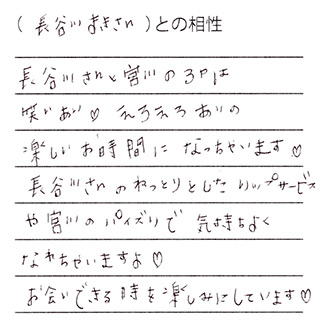 (長谷川まきさん)との相性
長谷川さんと宮川の3Pは
笑いあり♡えろえろありの
楽しいお時間になっちゃいます♡
長谷川さんのねっとりとしたリップサービス
や宮川のパイズリで気持ちよく
なれちゃいますよ♡
お会いできる時を楽しみにしています♡